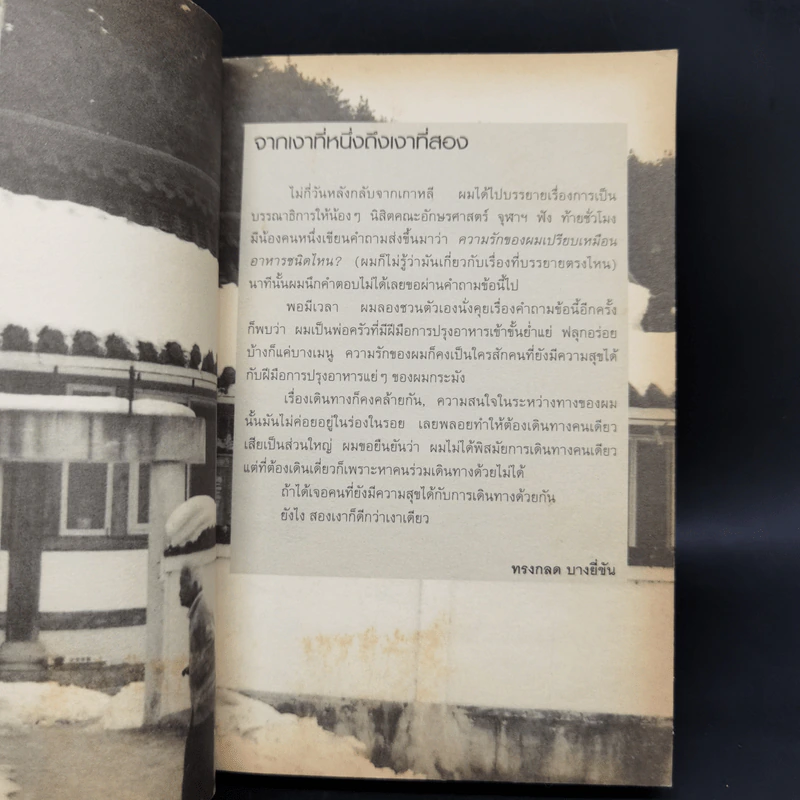 จากเงาที่หนึ่งถึงเงาที่สอง
ไม่กี่วันหลังกลับจากเกาหลี ผมได้ไปบรรยายเรื่องการเป็น
บรรณาธิการให้น้องๆ นิสิตคณะอักษรศาสตร์ จุฬาฯ ฟัง ท้ายชั่วโมง
มีน้องคนหนึ่งเขียนคำถามส่งขึ้นมาว่า ความรักของผมเปรียบเหมือน
อาหารชนิดไหน? (ผมก็ไม่รู้ว่ามันเกี่ยวกับเรื่องที่บรรยายตรงไหน)
นาทีนั้นผมนึกคำตอบไม่ได้เลยขอผ่านคำถามข้อนี้ไป
พอมีเวลา ผมลองชวนตัวเองนั่งคุยเรื่องคำถามข้อนี้อีกครั้ง
ก็พบว่า ผมเป็นพ่อครัวที่มีฝีมือการปรุงอาหารเข้าขั้นย่ำแย่ ฟลุกอร่อย
บ้างก็แค่บางเมนู ความรักของผมก็คงเป็นใครสักคนที่ยังมีความสุขได้
กับฝีมือการปรุงอาหารแย่ๆ ของผมกระมัง
เรื่องเดินทางก็คงคล้ายกัน, ความสนใจในระหว่างทางของผม
นั้นมันไม่ค่อยอยู่ในร่องในรอย เลยพลอยทำให้ต้องเดินทางคนเดียว
เสียเป็นส่วนใหญ่ ผมขอยืนยันว่า ผมไม่ได้พิสมัยการเดินทางคนเดียว
แต่ที่ต้องเดินเดี่ยวก็เพราะหาคนร่วมเดินทางด้วยไม่ได้
ถ้าได้เจอคนที่ยังมีความสุขได้กับการเดินทางด้วยกัน
ยังไง สองเงาก็ดีกว่าเงาเดียว
ทรงกลด บางยี่ขัน